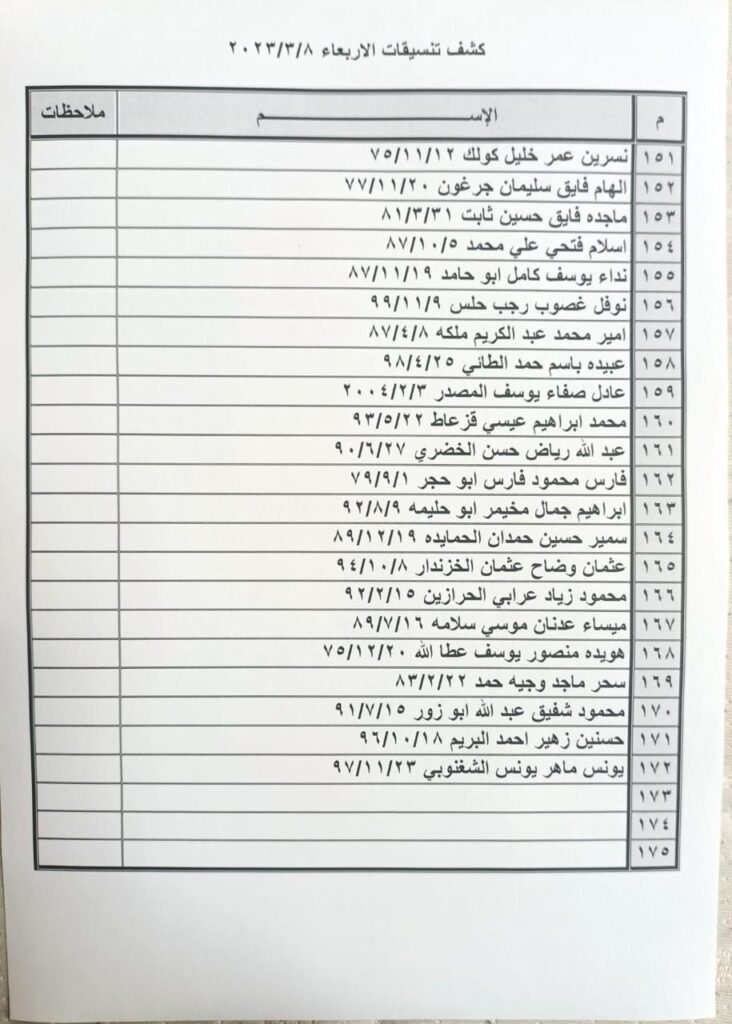 كشف تنسيقات الاربعاء ٢٠٢٣/٣/٨
م الإســـــــــم ملاحظات
١٥١ نسرين عمر خليل كولك ٧٥/١١/١٢
١٥٢ الهام فايق سليمان جرغون ٧٧/١١/٢٠
١٥٣ ماجده فايق حسين ثابت ٨١/٣/٣١
١٥٤ اسلام فتحي علي محمد ٨٧/١٠/٥
١٥٥ نداء يوسف كامل ابو حامد ٨٧/١١/١٩
١٥٦ نوفل غصوب رجب حلس ٩٩/١١/٩
١٥٧ امير محمد عبد الكريم ملكه ٨٧/٤/٨
١٥٨ عبيده باسم حمد الطائي ٩٨/٤/٢٥
١٥٩ عادل صفاء يوسف المصدر ٢٠٠٤/٢/٣
١٦٠ محمد ابراهيم عيسي قزعاط ٩٣/٥/٢٢
١٦١ عبد الله رياض حسن الخضري ٩٠/٦/٢٧
١٦٢ فارس محمود فارس ابو حجر ٧٩/٩/١
١٦٣ ابراهيم جمال مخيمر ابو حليمه ٩٢/٨/٩
١٦٤ سمير حسين حمدان الحمايده ٨٩/١٢/١٩
١٦٥ عثمان وضاح عثمان الخزندار ٩٤/١٠/٨
١٦٦ محمود زياد عرابي الحرازين ٩٢/٢/١٥
١٦٧ ميساء عدنان موسي سلامه ٨٩/٧/١٦
١٦٨ هويده منصور يوسف عطا الله ٧٥/١٢/٢٠
١٦٩ سحر ماجد وجيه حمد ٨٣/٢/٢٢
١٧٠ محمود شفيق عبد الله ابو زور ٩١/٧/١٥
١٧١ حسنين زهير احمد البريم ٩٦/١٠/١٨
١٧٢ يونس ماهر يونس الشغنوبي ٩٧/١١/٢٣
١٧٣
١٧٤
١٧٥